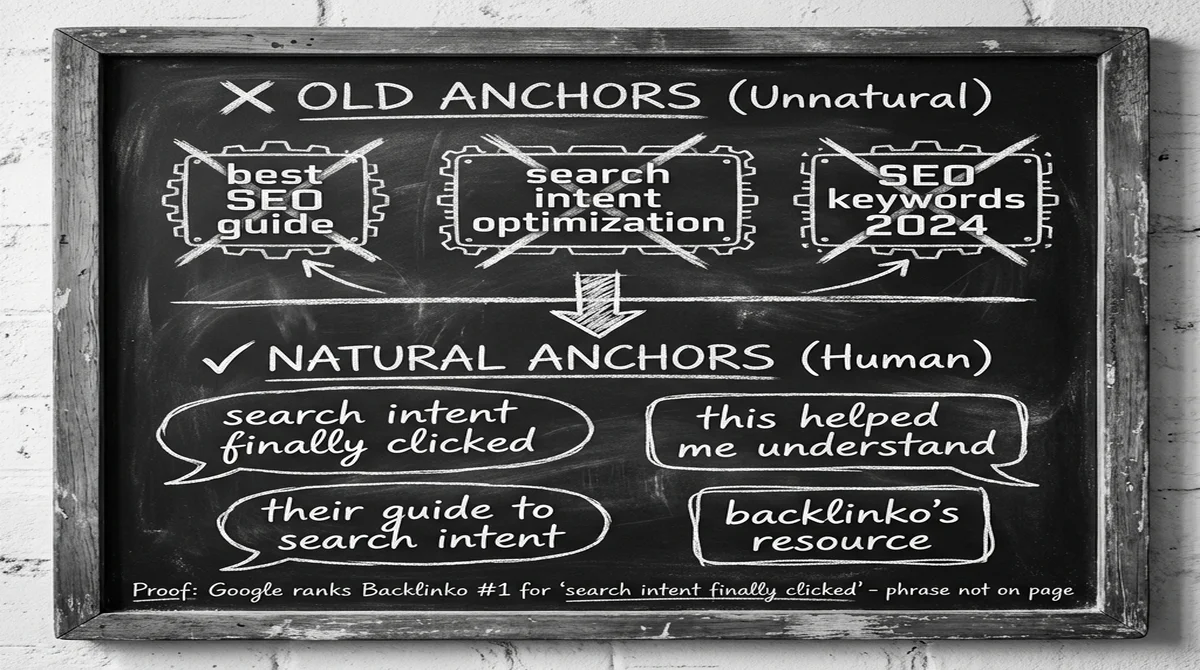 OLD ANCHORS (Unnatural)
best
SEO
guide
search
intent
optimization
SEO
keywords
2024
NATURAL ANCHORS (Human)
search intent
finally clicked
this helped
me understand
their guide to
search intent
backlinko's
resource
Proof: Google ranks Backlinko #1 for 'search intent finally clicked' - phrase not on page